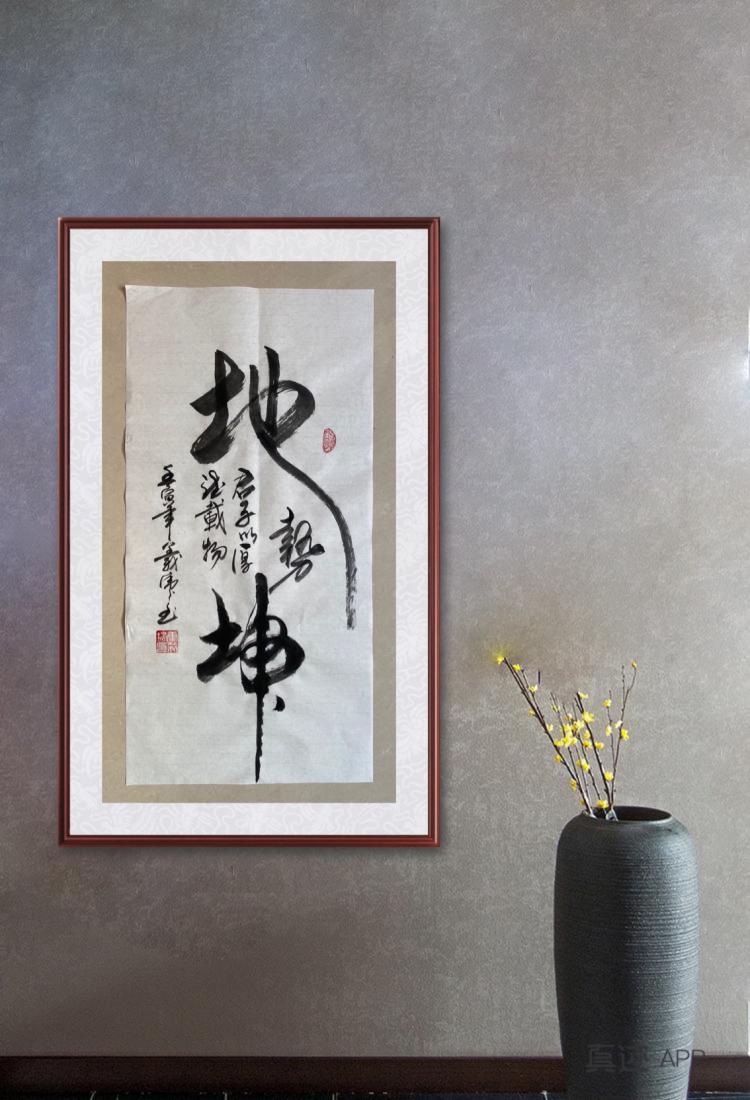 地
勢
坤
君子以厚
德載物
壬寅年
真迹 APP